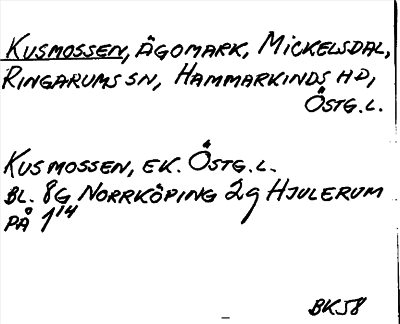 KUSMOSSEN, ÄGOMARK, MICKELSDAL,
RINGARUMS SN, HAMMARKINDS HD,
ÖSTG. L.
KUSMOSSEN, EK. ÖSTG. L.
BL. 8G NORRKÖPING 2g HJULERUM
PÅ 1¹⁴
BK58